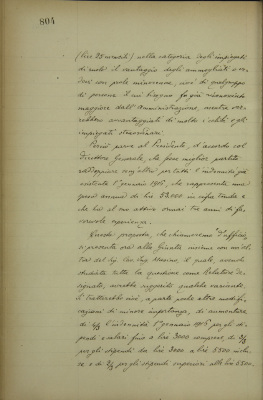 804
(lire 25 mensili) nella categoria degli impiegati
di molto il vantaggio degli ammogliati o ve-
dovi con prole minorenne, cioè di quel gruppo
di persone il cui bisogno fu già riconosciuto
maggiore dall'Amministrazione, mentre ver-
rebbero avvantaggiati di molto i celibi e gli
impiegati straordinari.
Perciò parve al Presidente, d'accordo col
Direttore Generale, che fosse miglior partito
raddoppiare senz'altro per tutti l'indennità già
esistente 1° gennaio 1916, che rappresenta una
spesa annua di lire 53.000 in cifra tonda e
che ha al suo attivo ormai tre anni di fa-
vorevole esperienza.
Questa proposta, che chiameremo d'ufficio,
si presenta ora alla Giunta insieme con
del Cav. il quale, avendo
studiata tutta la questione come Relatore de-
signato, avrebbe suggerito qualche variante.
Si tratterebbe cioè, a parte poche altre modifi-
cazioni di minore importanza, di aumentare
di 4/3 l'indennità 1° gennaio 1916 per gli sti-
pendi e salari fino a lire 3000 comprese, di 3/3
per gli stipendi da lire 3000 a lire 5500 inclu-
se e di 2/3 per gli stipendi superiori alle lire 5500.